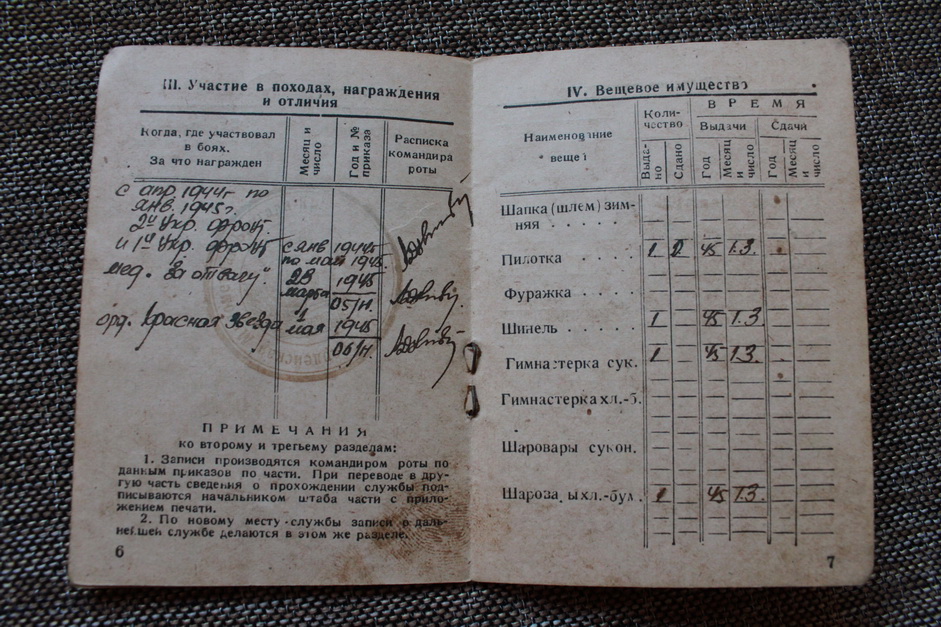 III. Участие в походах, награждения
и отличия
Когда, где участвовал
в боях.
За что награжден
Месяц и
число
Год и №
приказа
Расписка
командира
роты
с апр. 1944г. по
янв 1945г.
2й Укр. фронт.
и 1й Укр. фронт
с янв 1945
по май 1945.
мед. "За отвагу"
23
марта
1945
05/н.
орд. Красная Звезда
1
мая
1945
06/н.
ПРИМЕЧАНИЯ
ко второму и третьему разделам:
1. Записи производятся командиром роты по
данным приказов по части. При переводе в дру-
гую часть сведения о прохождении службы под-
писываются начальником штаба части с прило-
жением печати.
2. По новому месту службы записи о даль-
нейшей службе делаются в этом же разделе.
6
IV. Вещевое имущество
Наименование
вещей
Коли-
чество
ВРЕМЯ
Выдачи
Сдачи
Выда-
но
Сдано
Год
Месяц
и
число
Год
Месяц
и
число
Шапка (шлем) зим-
няя . . . .
Пилотка . . . . 1 2 45 1.3.
Фуражка . . . .
Шинель . . . . . 1 45 1.3.
Гимнастерка сук. 1 45 1.3.
Гимнастерка хл.-б.
Шаровары сукон.
Шаровары хл.-бум. 1 45 1.3.
7